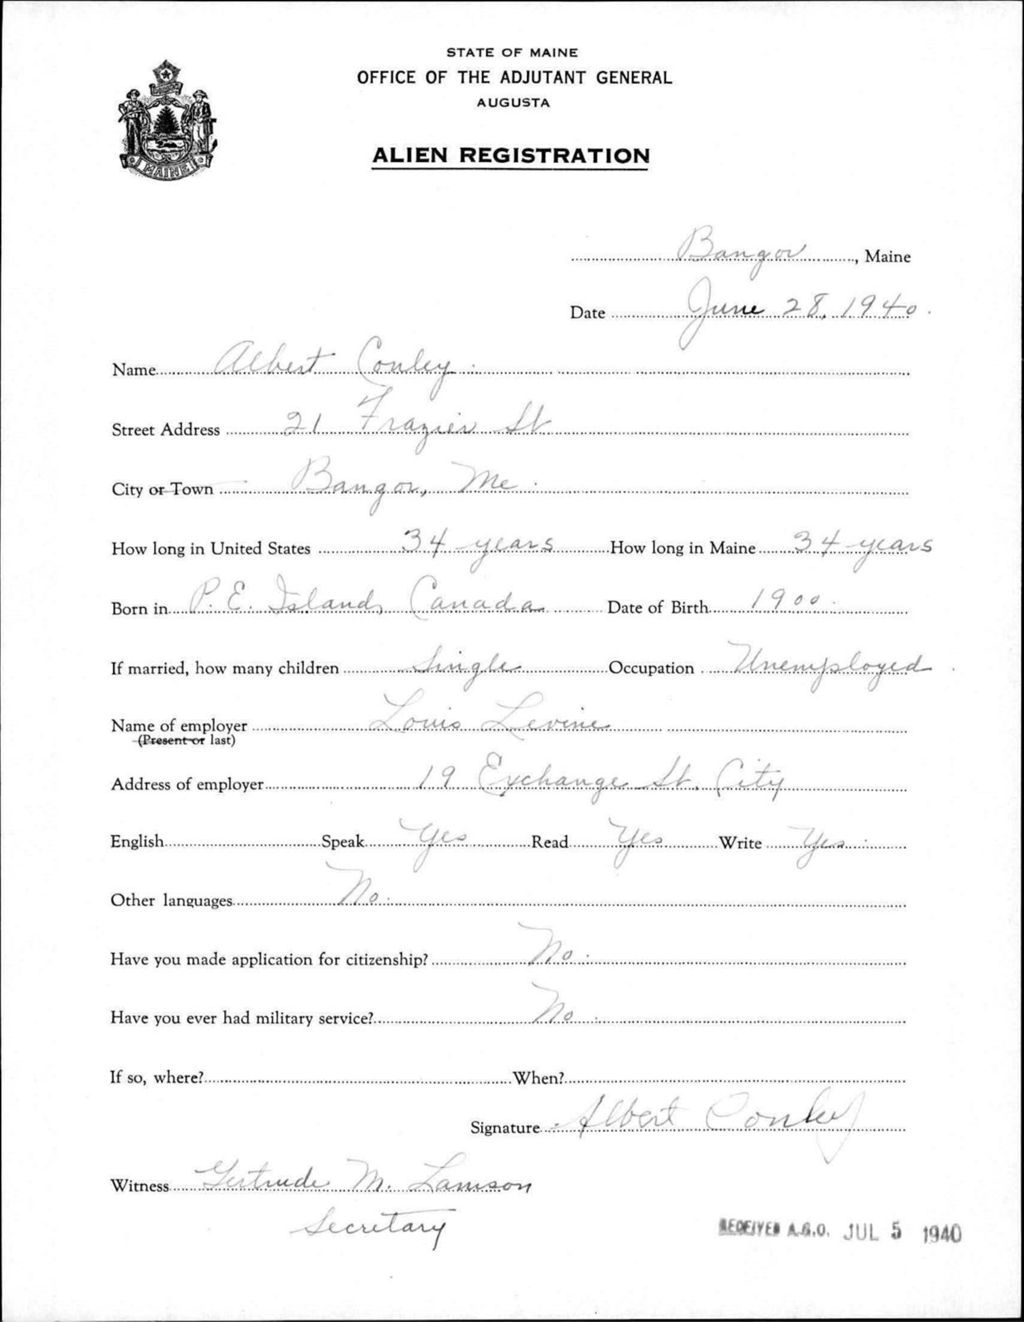 STATE OF MAINE
OFFICE OF THE ADJUTANT GENERAL
AUGUSTA
ALIEN REGISTRATION
MAINE
Bangor, Maine
Date June 28, 1940.
Name Albert Conley.
Street Address 21 Frazier St
City or Town Bangor, Me.
How long in United States 34 years How long in Maine 34 years
Born in P. E. Island, Canada Date of Birth 1900.
If married, how many children Single Occupation Unemployed.
Name of employer Louis Levine
(Present or last)
Address of employer 19 Exchange St. City
English Speak Yes Read Yes Write Yes.
Other languages No.
Have you made application for citizenship? No.
Have you ever had military service? No.
If so, where? When?
Signature Albert Conley
Witness Gertrude M. Lamson
Secretary
RECEIVED A.G.O. JUL 5 1940